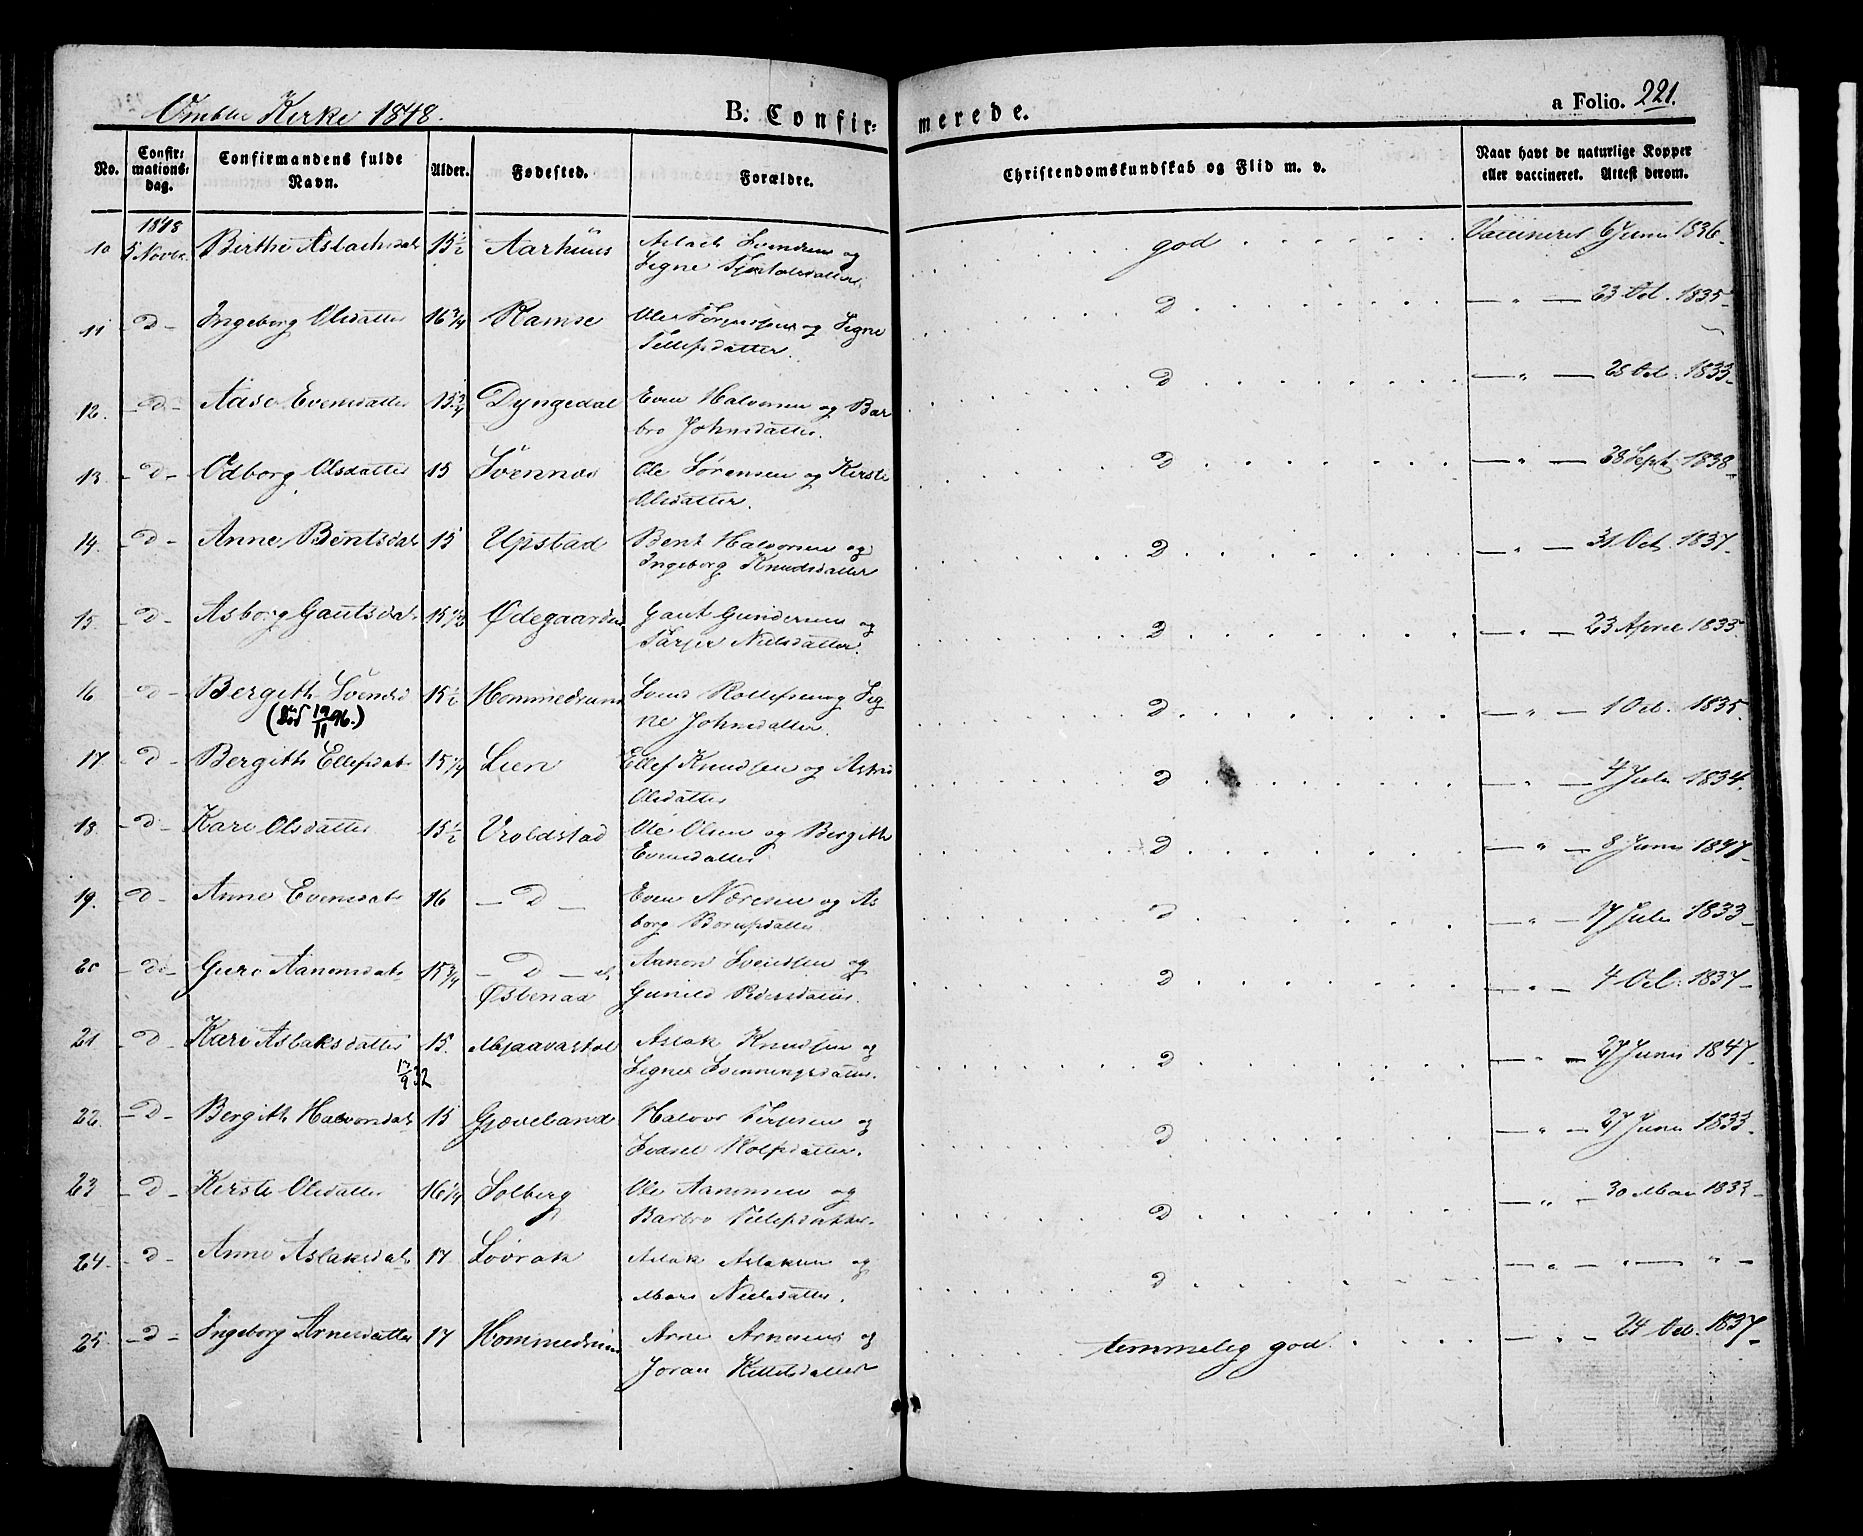 Omblie Kirke 1848.
B. Confir-
merede.
a Folio. 221.
No.
Confir-
mations-
dag.
Confirmandens fulde
Navn.
Alder.
Fødested.
Forældre.
Christendomskundskab og Flid m. v.
Naar havt de naturlige Kopper
eller vaccineret. Attest derom.
1848
10 5 Novbr. Birthe Aslachsdat 15½ Aarhuus Aslach Svendsen og god Vaccineret 6 Juni 1836
Signe
11 - D - Ingeborg Olsdatter 16¾ Ramse Ole Terjesen og Signe D - " - 23 Oct. 1835
Tellefsdatter.
12. - D - Aase Evensdatter 15¾ Dyngedal Even Halvorsen og Bar D - " - 28 Oct. 1833
bro Johnsdatter.
13 - D - Odborg Olsdatter 15 Svennes Ole Sørensen og Kirste D - " - 28 Sept. 1838
Olsdatter.
14. - D - Anne Bentsdat 15 Upstad Bent Halvorsen og D - " - 31 Oct. 1837
Ingeborg Knudsdatter
15. - D - Asborg Gautsdat Ødegaarden Gaut Gundersen og D - " - 23 April 1835
Tarjer Nielsdatter.
16 - D - Bergith Svendsd 15½ Hommedrum Svend Rollefsen og Sig D - " - 1 Oct. 1835
(død 19/11 96.) ne Johnsdatter.
17. - D - Bergith Ellefsdat 15¼ Lien Ellef Knudsen og Astri D - " - 4 Juli 1834
Olsdatter
18. - D - Kari Olsdatter 15½ Vroldstad Ole Olsen og Bergith D - " - 8 Juni 1847
Evensdatter
19. - D - Anne Evensdat 16 - D - Even Næresen og As D - " - 17 Juli 1833
borg
20 - D - Guro Aanonsdat 15¾ - D - Aanon Sveinsen og D - " - 4 Oct. 1837
Østenaa Gunild Pedersdatter.
21 - D - Kari Aslaksdatter 15. Mjaavastøl Aslak Knudsen og D - " - 27 Juni 1847
Signe Svenningsdatter.
22. - D - Bergith Halvorsdat 15 Gjøveland Halvor Terjesen og D - " - 27 Juni 1833
Rolfsdatter.
23 - D - Kirste Olsdatter 16¼ Solberg Ole Aanonsen og D - " - 30 Mai 1833
Barbro Tellefsdatter.
24. - D - Anne Aslaksdat 17 Lovrak Aslak Aslaksen og D - " - " - " -
Mari Nielsdatter.
25. - D - Ingeborg Arnesdatter 17 Hommedrum Arne Arnesen og temmelig god - " - 24 Oct. 1837
Joran Kittilsdatter